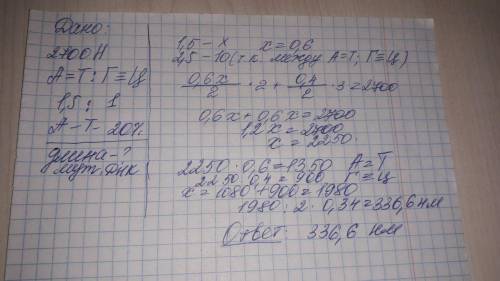 Дано:
2700 Н
А=Т; Г≡Ц
1,5 : 1
А-Т- 20%
длина-?
мут. днк
1,5 - х х=0,6
2,5 - 10 (т.к. между А=Т; Г≡Ц)
0,6х/2 · 2 + 0,4/2 · 3 = 2700
0,6х+0,6х=2700
1,2х=2700
х=2250.
2250·0,6=1350 А=Т
2250·0,4=900 Г≡Ц
х=1080+900=1980
1980:2·0,34=336,6 нм
Ответ: 336,6 нм